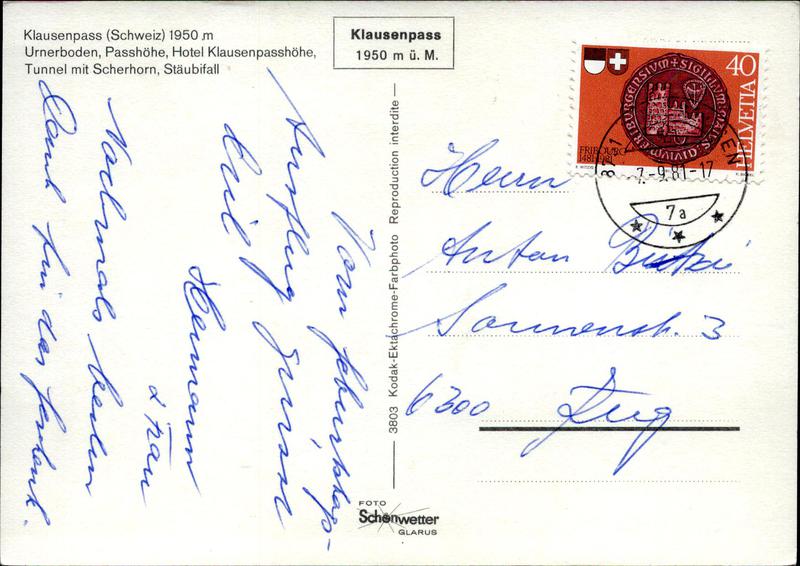 Klausenpass (Schweiz) 1950 m
Urnerboden, Passhöhe, Hotel Klausenpasshöhe,
Tunnel mit Scherhorn, Stäubifall
Klausenpass
1950 m ü. M.
Vom Geburtstags-
Ausflug grüsst
Hermann
& Frau
Nochmals besten
Dank für das Geschenk.
3803 Kodak-Ektachrome-Farbphoto Reproduction interdite
FOTO
Schönwetter
GLARUS
40
HELVETIA
FRIBOURG
1481-1981
7.-9.81-17
7a
Herrn
Anton
Sonnenstr. 3
6300 Zug